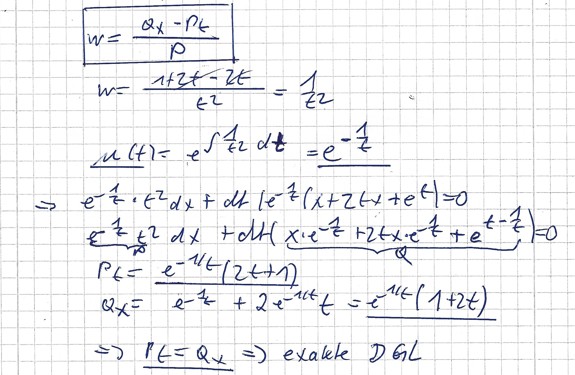 w = (Qx - Pt) / P
w = (1+2t - 2t) / t² = 1/t²
μ(t) = e^∫ 1/t² dt = e^-1/t
=> e^-1/t · t² dx + dt (e^-1/t (x+2tx+e^t) = 0
e^-1/t t² dx + dt( x·e^-1/t + 2tx·e^-1/t + e^t-1/t ) = 0
P Q
Pt = e^-1/t (2t+1)
Qx = e^-1/t + 2e^-1/t t = e^-1/t (1+2t)
=> Pt = Qx => exakte DGL